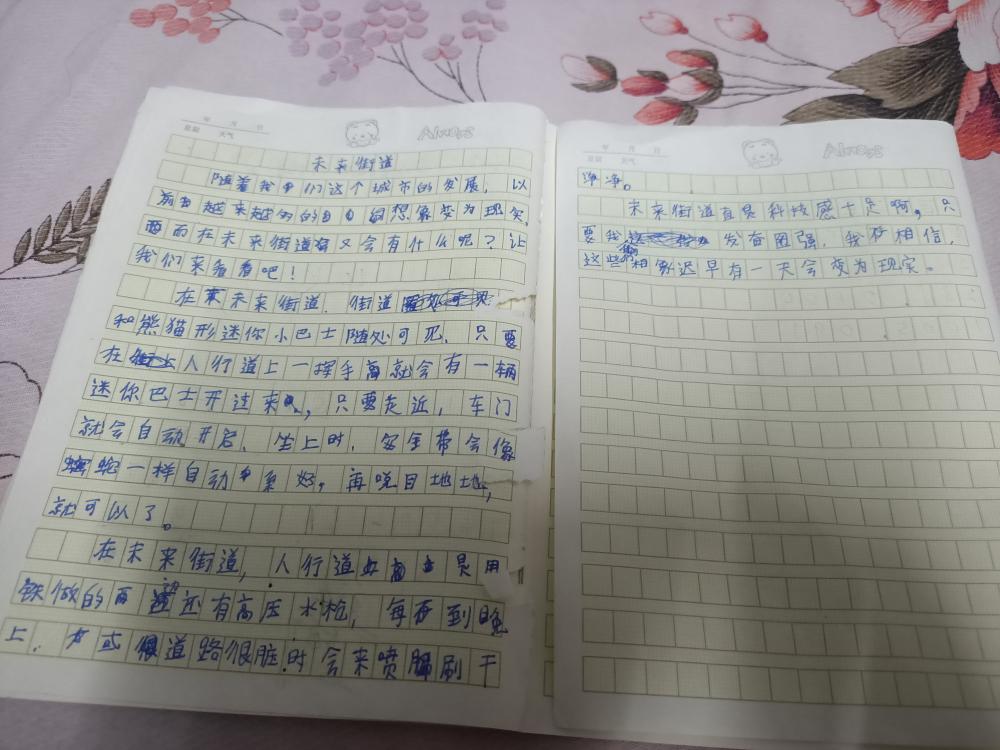 年 月 日
星期 天气
Always
未来街道
随着我们这个城市的发展，以
前越来越多的幻想象变为现实，
而在未来街道又会有什么呢？让
我们来看看吧！
在未来街道，街道
和熊猫形迷你小巴士随处可见，只要
在人行道上一挥手就会有一辆
迷你巴士开过来，只要走近，车门
就会自动开启，坐上时，安全带会像
蛇一样自动系好，再说目地地，
就可以了。
在未来街道，人行道是用
铁做的而还有高压水枪，每到晚
上，或道路很脏时会来喷刷干
年 月 日
星期 天气
Always
净净。
未来街道真是科技感十足啊，只
要我发奋图强，我相信，
这些想象迟早有一天会变为现实。